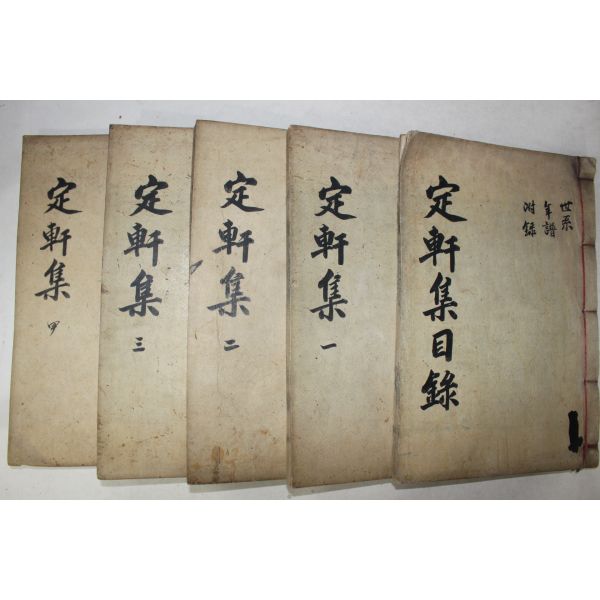 世系
年譜
附錄
定軒集目錄
定軒集 一
定軒集 二
定軒集 三
定軒集